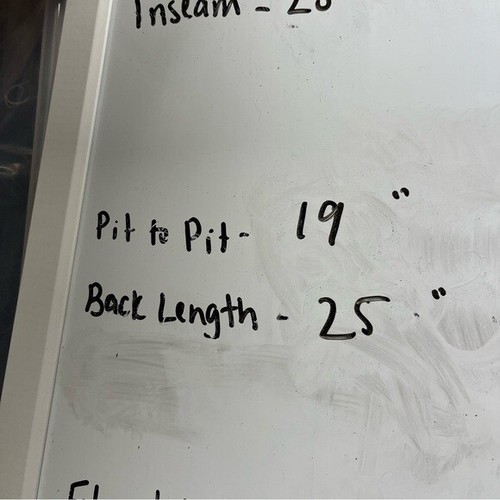 Inseam -
Pit to Pit - 19 "
Back Length - 25 "